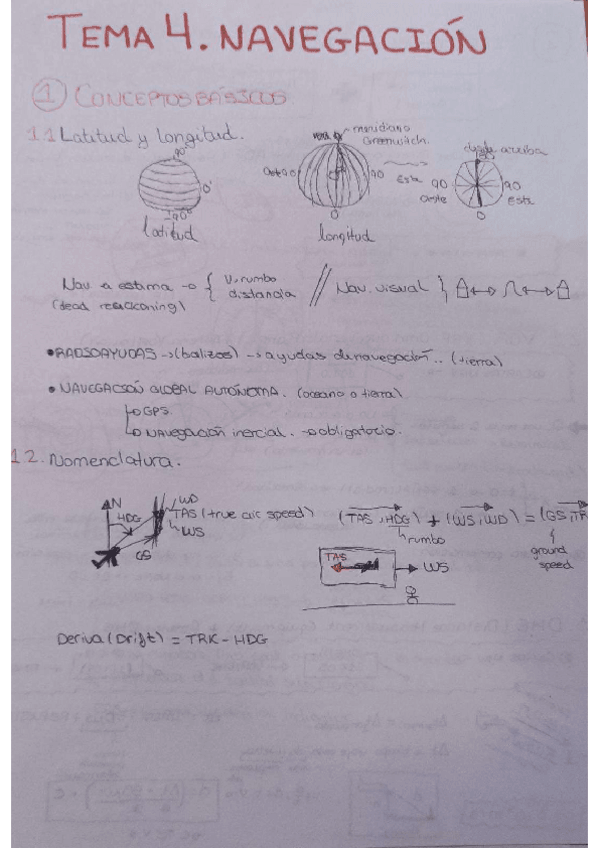 TEMA 4. NAVEGACIÓN
1 CONCEPTOS BÁSICOS
1.1 Latitud y longitud.
90°
0°
-90°
latitud
meridiano
Greenwich.
90
Este
0
longitud
arriba
90
Oeste
90
Este
0
Nav a estima → { V, rumbo
distancia // Nav. visual }
(dead reackoning)
• RADIOAYUDAS → (balizas) → ayudas de navegación.. (tierra)
• NAVEGACIÓN GLOBAL AUTÓNOMA. (oceano o tierra)
→ GPS
→ NAVEGACIÓN INERCIAL. → obligatorio.
1.2. Nomenclatura.
N
HDG
WD
TAS (true air speed)
WS
GS
(TAS, HDG) + (WS, WD) = (GS, TR
rumbo
ground
speed
TAS
WS
Deriva (Drift) = TRK - HDG